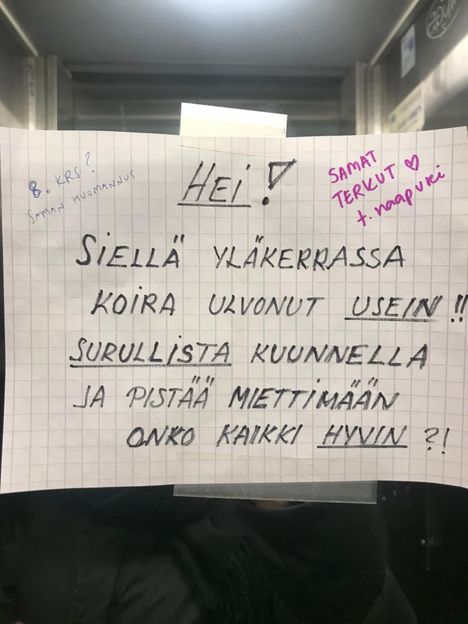 8. KRS?
SAMAN HUOMANNUT
HEI!
SAMAT
TERKUT ♡
t. naapuri
SIELLÄ YLÄKERRASSA
KOIRA ULVONUT USEIN!!
SURULLISTA KUUNNELLA
JA PISTÄÄ MIETTIMÄÄN
ONKO KAIKKI HYVIN ?!